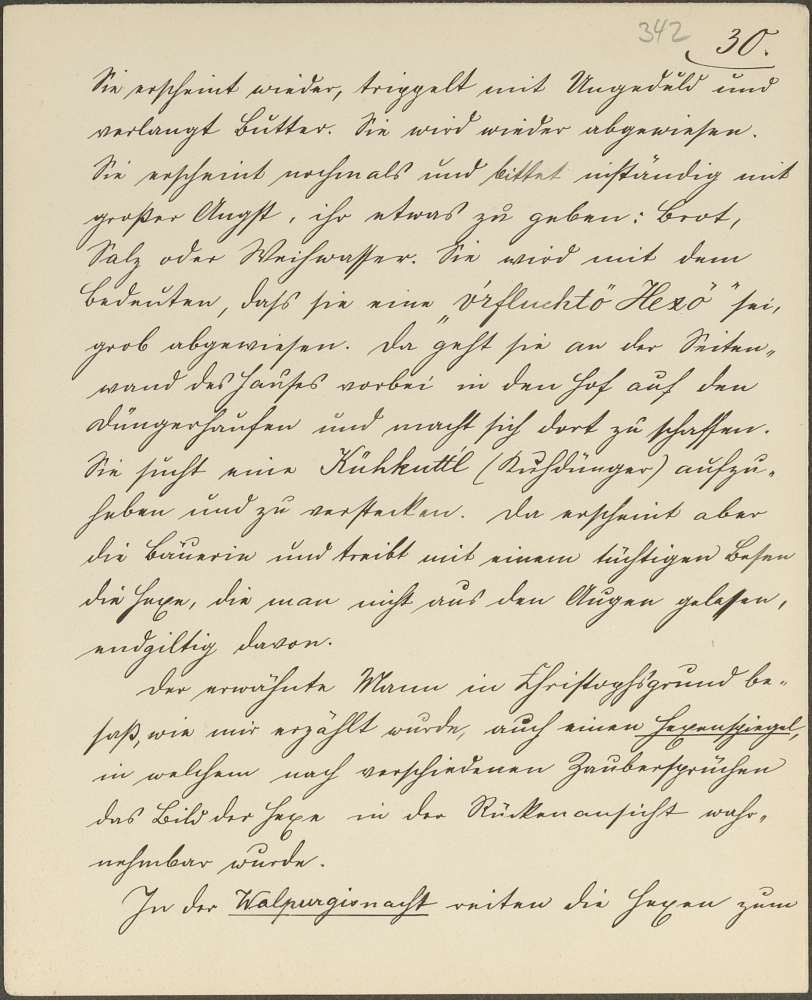 342 30.
Sie erscheint wieder, trippelt mit Ungeduld und
verlangt Butter. Sie wird wieder abgewiesen.
Sie erscheint nochmals und bittet inständig mit
großer Angst, ihr etwas zu geben: Brot,
Salz oder Weihwasser. Sie wird mit dem
Bedeuten, dass sie eine „vrfluchtö Hexö" sei,
grob abgewiesen. Da geht sie an der Seiten-
wand des Hauses vorbei in den Hof auf den
Düngerhaufen und macht sich dort zu schaffen.
Sie sucht eine Kühkuttl (Kuhdünger) aufzu-
heben und zu verstecken. Da erscheint aber
die Bäuerin und treibt mit einem tüchtigen Besen
die Hexe, die man nicht aus den Augen gelassen,
endgiltig davon.
Der erwähnte Mann in Christophsgrund be-
saß, wie mir erzählt wurde, auch einen Hexenspiegel,
in welchem nach verschiedenen Zaubersprüchen
das Bild der Hexe in der Rückenansicht wahr-
nehmbar wurde.
In der Walpurgisnacht reiten die Hexen zum